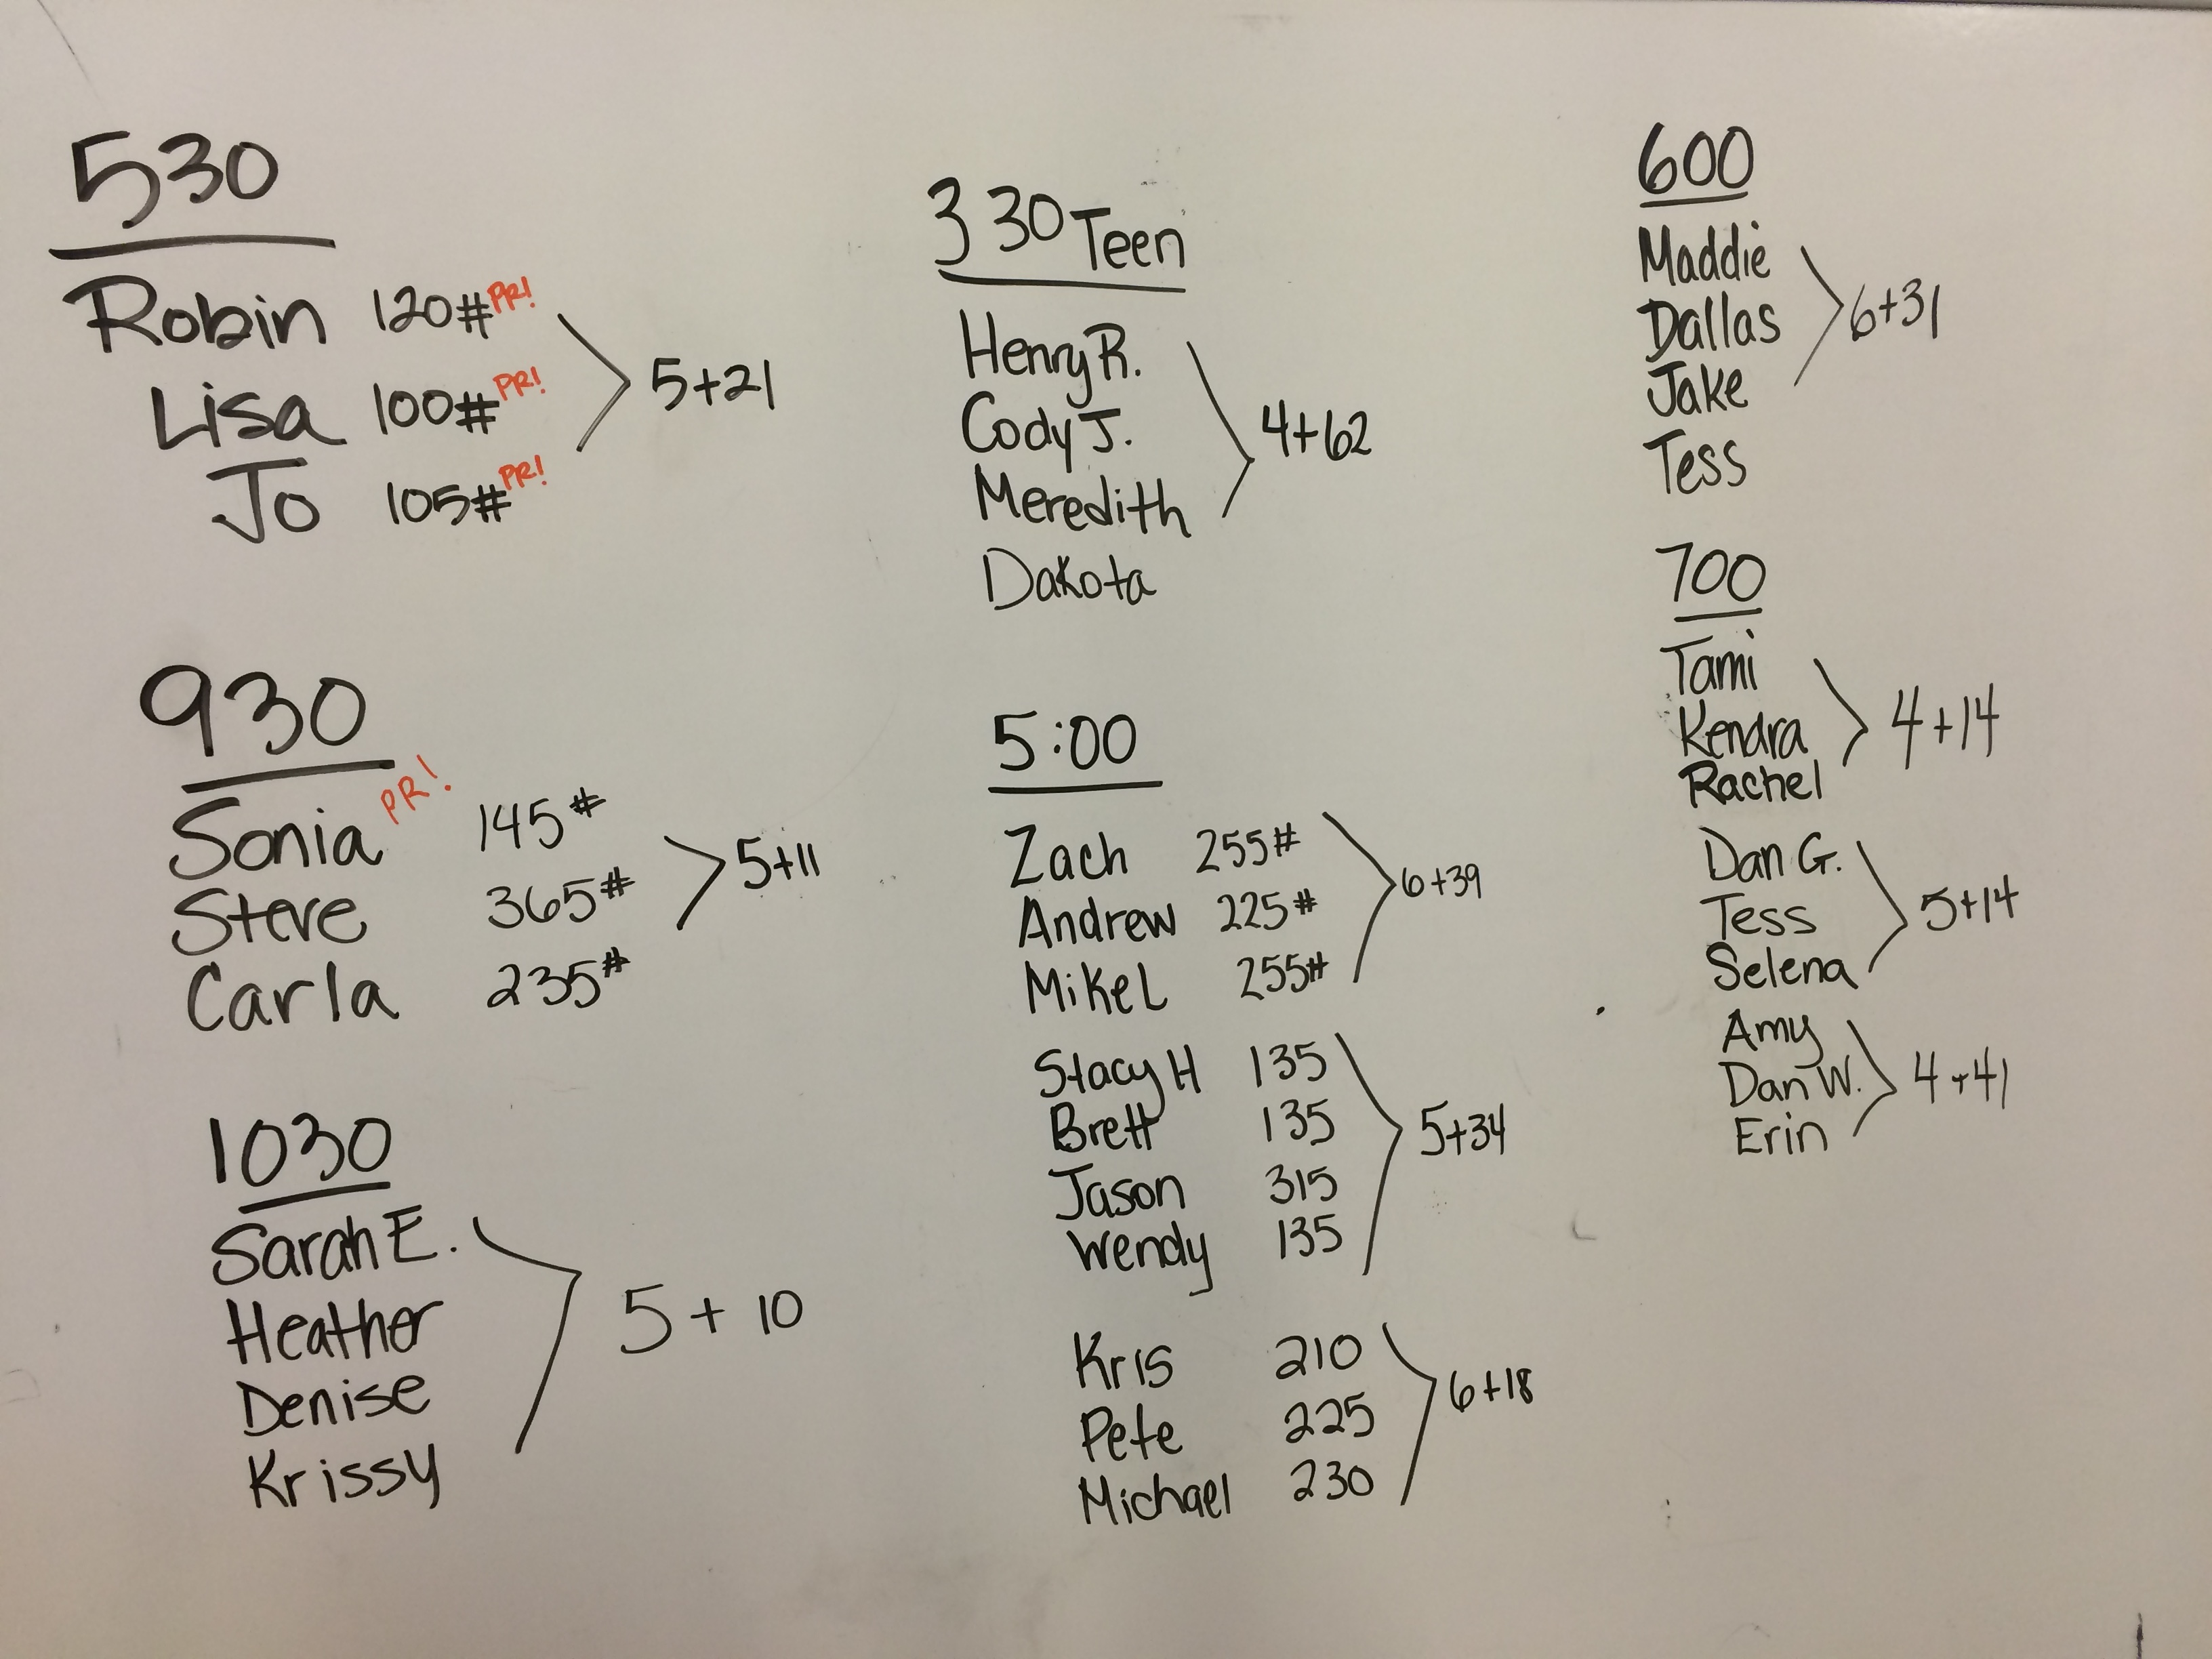 530
Robin 120# PR!
Lisa 100# PR!
Jo 105# PR!
5+21
930
Sonia PR! 145#
Steve 365#
Carla 235#
5+11
1030
Sarah E.
Heather
Denise
Krissy
5 + 10
3 30 Teen
Henry R.
Cody J.
Meredith
Dakota
4+62
5:00
Zach 255#
Andrew 225#
Mike L 255#
6+39
Stacy H 135
Brett 135
Jason 315
Wendy 135
5+34
Kris 210
Pete 225
Michael 230
6+18
600
Maddie
Dallas
Jake
Tess
6+31
700
Tami
Kendra
Rachel
4+14
Dan G.
Tess
Selena
5+14
Amy
Dan W.
Erin
4+41